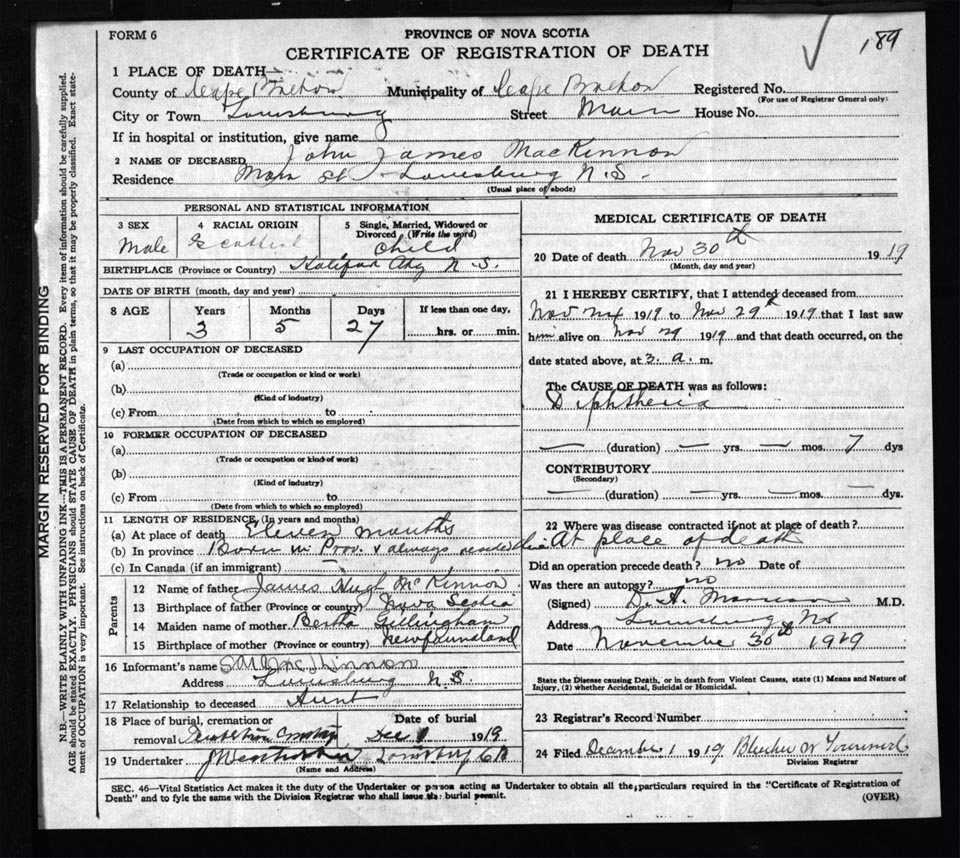 189
FORM 6
PROVINCE OF NOVA SCOTIA
CERTIFICATE OF REGISTRATION OF DEATH
1 PLACE OF DEATH
County of Cape Breton Municipality of Cape Breton Registered No.
(For use of Registrar General only)
City or Town Louisburg Street Main House No.
If in hospital or institution, give name
2 NAME OF DECEASED John James MacKinnon
Residence Main St Louisburg N.S.
(Usual place of abode)
MARGIN RESERVED FOR BINDING
N.B.—WRITE PLAINLY WITH UNFADING INK—THIS IS A PERMANENT RECORD. Every item of information should be carefully supplied.
AGE should be stated EXACTLY. PHYSICIANS should STATE CAUSE OF DEATH in plain terms, so that it may be properly classified. Exact state-
ment of OCCUPATION is very important. See instructions on back of Certificate.
PERSONAL AND STATISTICAL INFORMATION
3 SEX 4 RACIAL ORIGIN 5 Single, Married, Widowed or
Divorced (Write the word)
Male Scottish Child
BIRTHPLACE (Province or Country) Halifax N.S.
DATE OF BIRTH (month, day and year)
8 AGE Years Months Days If less than one day,
3 5 27 hrs. or min.
9 LAST OCCUPATION OF DECEASED
(a)
(Trade or occupation or kind or work)
(b)
(Kind of industry)
(c) From to
(Date from which to which so employed)
10 FORMER OCCUPATION OF DECEASED
(a)
(Trade or occupation or kind of work)
(b)
(Kind of industry)
(c) From to
(Date from which to which so employed)
11 LENGTH OF RESIDENCE (In years and months)
(a) At place of death Eleven months
(b) In province Born in Prov. & always resided in
(c) In Canada (if an immigrant)
Parents
12 Name of father James Hugh McKinnon
13 Birthplace of father (Province or country) Nova Scotia
14 Maiden name of mother Bertha Gillingham
15 Birthplace of mother (Province or country) Newfoundland
16 Informant's name
Address Louisburg N.S.
17 Relationship to deceased Aunt
18 Place of burial, cremation or Date of burial
removal Dec 1 1919
19 Undertaker Louisburg CB
(Name and Address)
MEDICAL CERTIFICATE OF DEATH
20 Date of death Nov 30th 1919
(Month, day and year)
21 I HEREBY CERTIFY, that I attended deceased from
Nov 1919 to Nov 29th 1919 that I last saw
him alive on Nov 29 1919 and that death occurred, on the
date stated above, at 3. a. m.
The CAUSE OF DEATH was as follows:
Diphtheria
(duration) yrs. mos. 7 dys
CONTRIBUTORY
(Secondary)
(duration) yrs. mos. dys.
22 Where was disease contracted if not at place of death?
At place of death
Did an operation precede death? no Date of
Was there an autopsy? no
(Signed) M.D.
Address Louisburg NS
Date November 30th 1919
State the Disease causing Death, or in death from Violent Causes, state (1) Means and Nature of
Injury, (2) whether Accidental, Suicidal or Homicidal.
23 Registrar's Record Number
24 Filed December 1 1919
Division Registrar
SEC. 46—Vital Statistics Act makes it the duty of the Undertaker or person acting as Undertaker to obtain all the particulars required in the "Certificate of Registration of
Death" and to fyle the same with the Division Registrar who shall issue the burial permit.
(OVER)